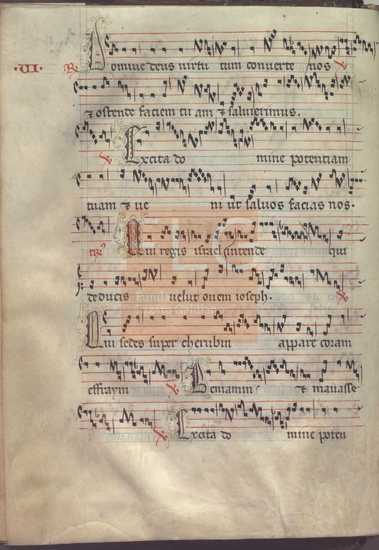 VI. R. Domine deus virtu tum converte nos
& ostende faciem tu am & salvi erimus.
V. Excita do mine potentiam
tuam & ve ni ut salvos facias nos.
Qui regis israel intende qui
deducis velut ovem ioseph.
Qui sedes super cherubin appare coram
effraym Beniamin & manasse
Excita do mine poten